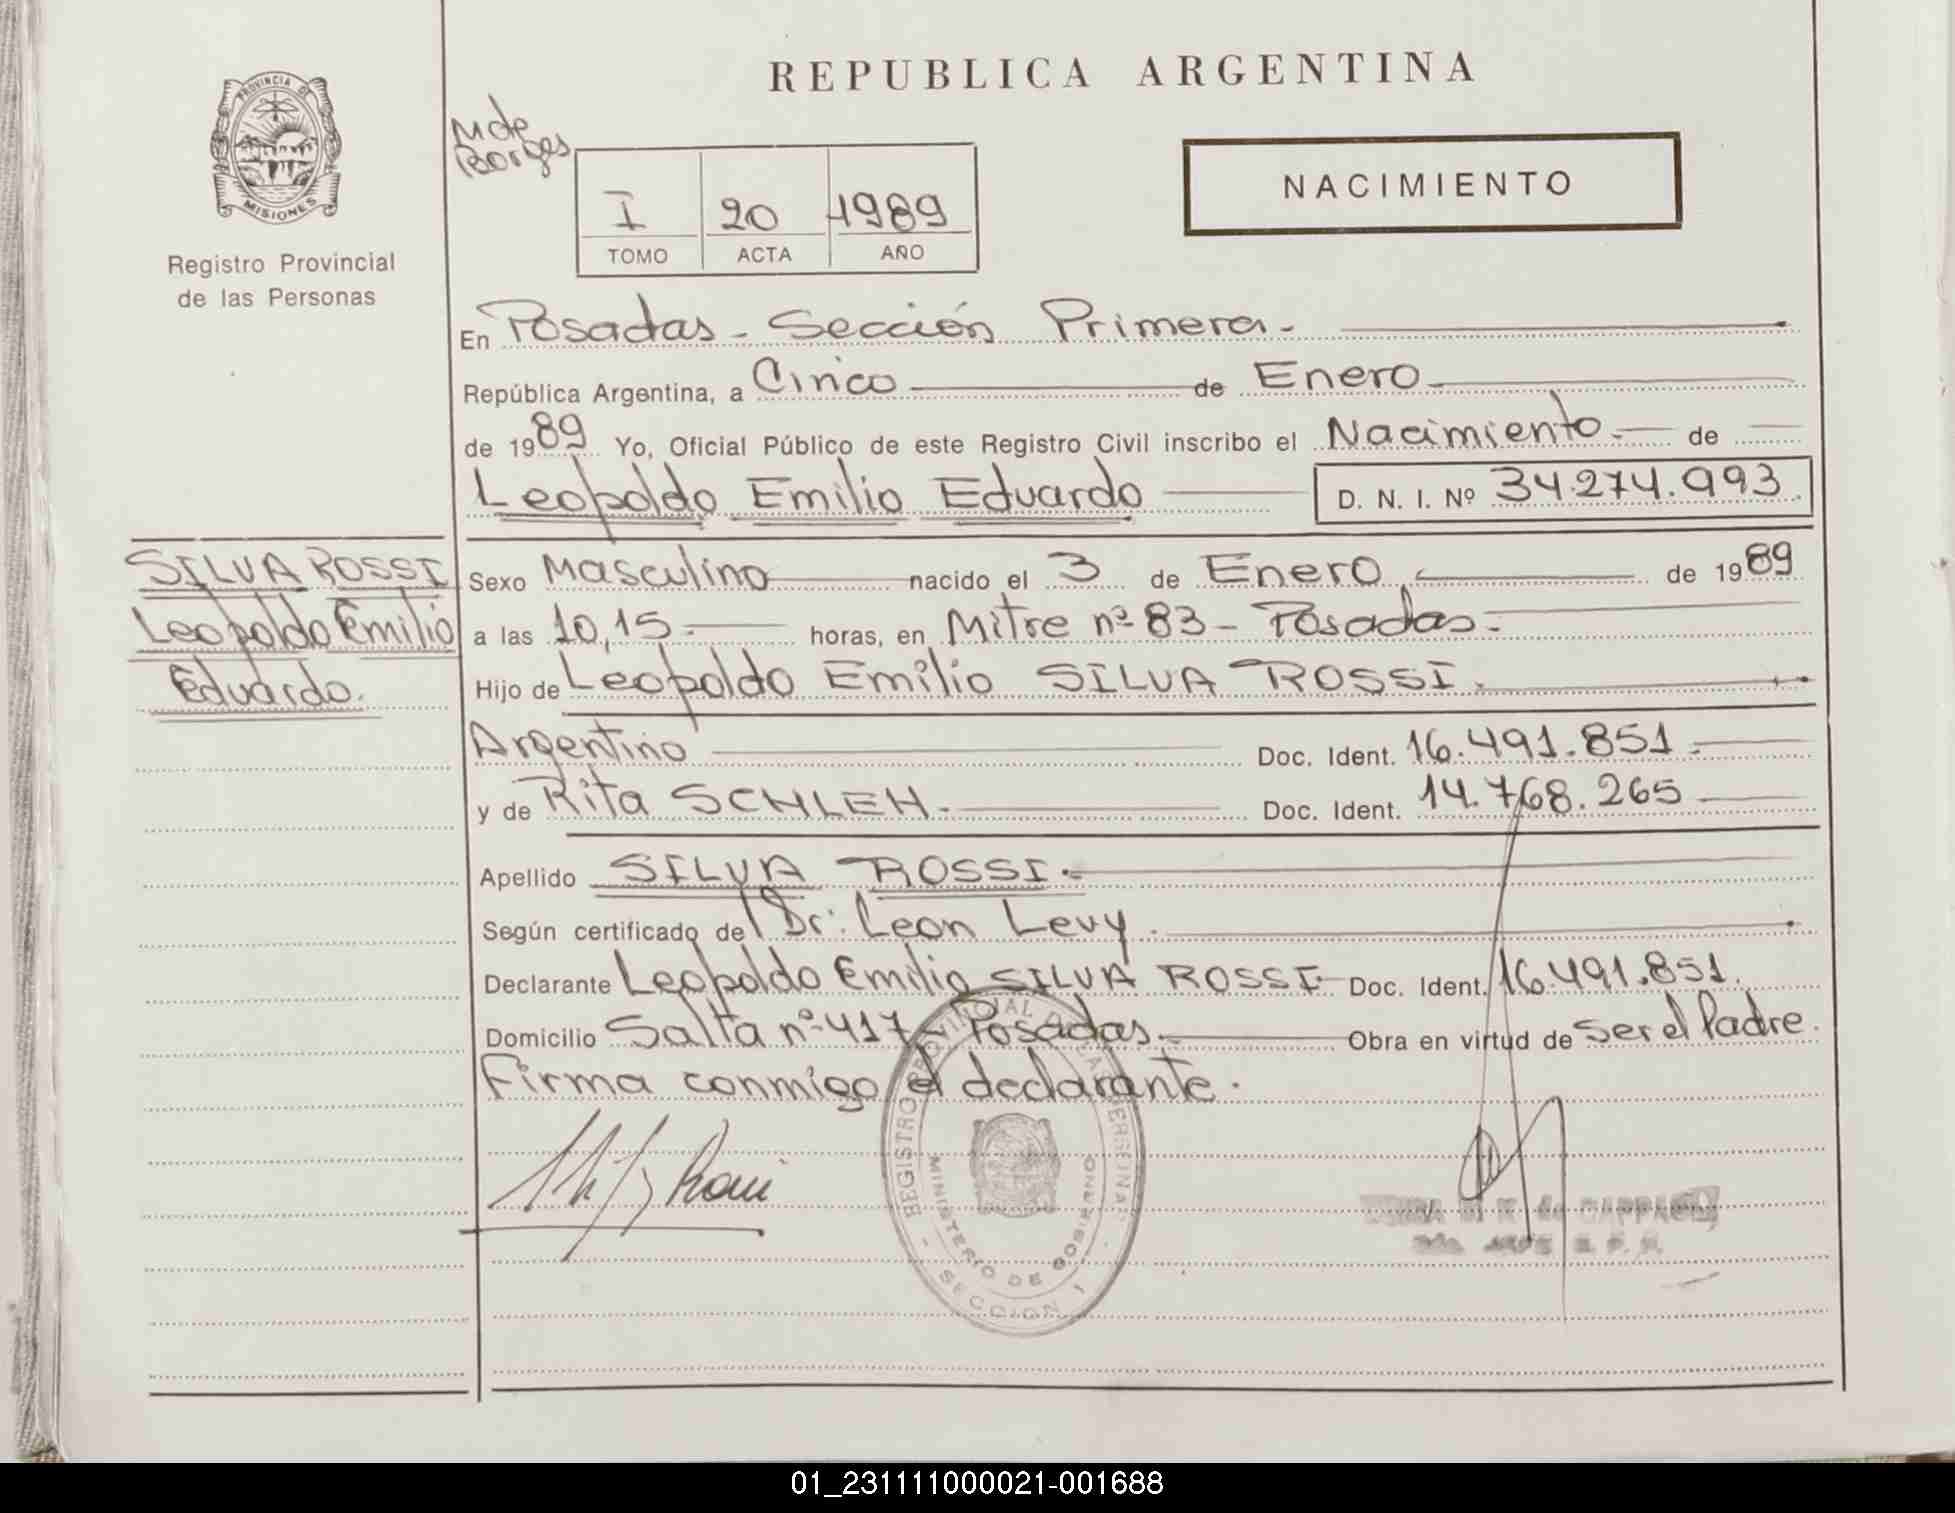 PROVINCIA DE
MISIONES
Registro Provincial
de las Personas
REPUBLICA ARGENTINA
M de
Borges
I 20 1989
TOMO ACTA AÑO
NACIMIENTO
En Posadas - Sección Primera -
República Argentina, a Cinco de Enero
de 1989 Yo, Oficial Público de este Registro Civil inscribo el Nacimiento de
Leopoldo Emilio Eduardo D. N. I. Nº 34.274.993
SILVA ROSSI
Leopoldo Emilio
Eduardo.
Sexo Masculino nacido el 3 de Enero de 1989
a las 10,15 horas, en Mitre nº 83 - Posadas -
Hijo de Leopoldo Emilio SILVA ROSSI.
Argentino Doc. Ident. 16.491.851
y de Rita SCHLEH. Doc. Ident. 14.768.265
Apellido SILVA ROSSI.
Según certificado del Dr. Leon Levy.
Declarante Leopoldo Emilio SILVA ROSSI Doc. Ident. 16.491.851.
Domicilio Salta nº 417 - Posadas. Obra en virtud de Ser el Padre.
Firma conmigo el declarante.
REGISTRO PROVINCIAL DE LAS PERSONAS
MINISTERIO DE GOBIERNO
- SECCION 1 -
01_231111000021-001688